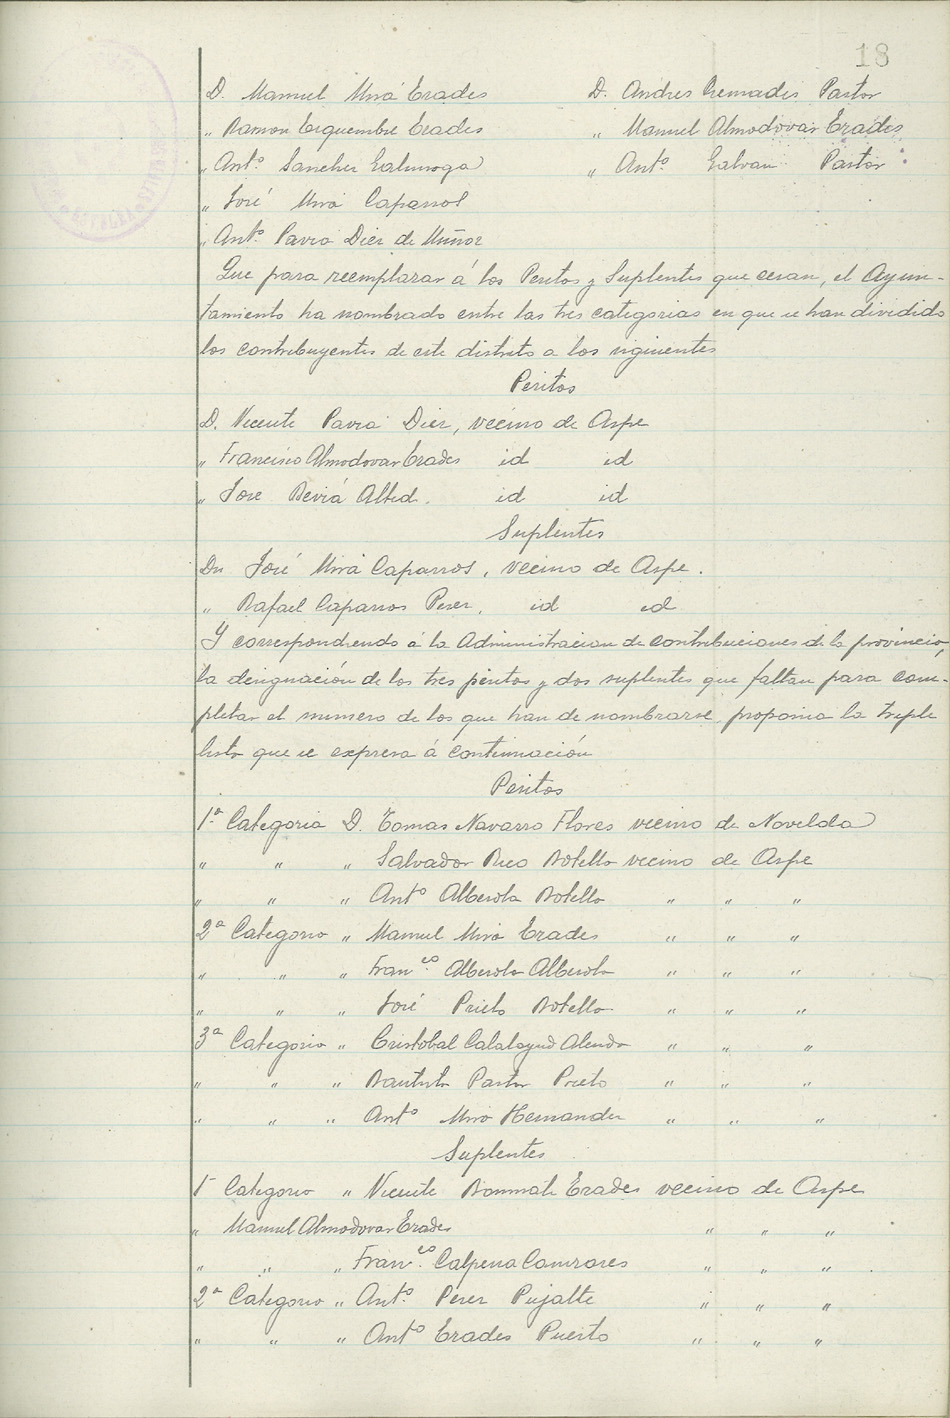 18
D. Manuel Mirá Erades D. Andres Cremades Pastor
„ Ramon Erquembre Erades „ Manuel Almodovar Erades
„ Antº Sanchez Galinsoga „ Antº Galvan Pastor
„ José Mirá Caparros
„ Antº Pavia Diez de Muñoz
Que para reemplazar á los Peritos y Suplentes que cesan, el Ayun-
tamiento ha nombrado entre las tres categorias en que se han dividido
los contribuyentes de este distrito a los siguientes
Peritos
D. Vicente Pavia Diez, vecino de Aspe
„ Francisco Almodovar Erades id id
„ Jose Beviá Alted. id id
Suplentes
Dn José Mirá Caparros, vecino de Aspe.
„ Rafael Caparros Perez, id id
Y correspondiendo á la Administracion de contribuciones de la provincia,
la designación de los tres peritos y dos suplentes que faltan para com-
pletar el numero de los que han de nombrarse, proponia la triple
lista que se expresa á continuación
Peritos
1ª Categoria D. Tomas Navarro Flores vecino de Novelda
„ „ „ Salvador Rico Botella vecino de Aspe
„ „ „ Antº Alberola Botella „ „ „
2ª Categoria „ Manuel Mira Erades „ „ „
„ „ „ Franco. Alberola Alberola „ „ „
„ „ „ José Prieto Botella „ „ „
3ª Categoria „ Cristobal Calatayud Alenda „ „ „
„ „ „ Bautista Pastor Prieto „ „ „
„ „ „ Antº Miro Hernandez „ „ „
Suplentes
1ª Categoria „ Vicente Bonmati Erades vecino de Aspe
„ Manuel Almodovar Erades „ „ „
„ „ „ Franco. Calpena Cañizares „ „ „
2ª Categoria „ Antº. Perez Pujalte „ „ „
„ „ „ Antº Erades Puerto „ „ „